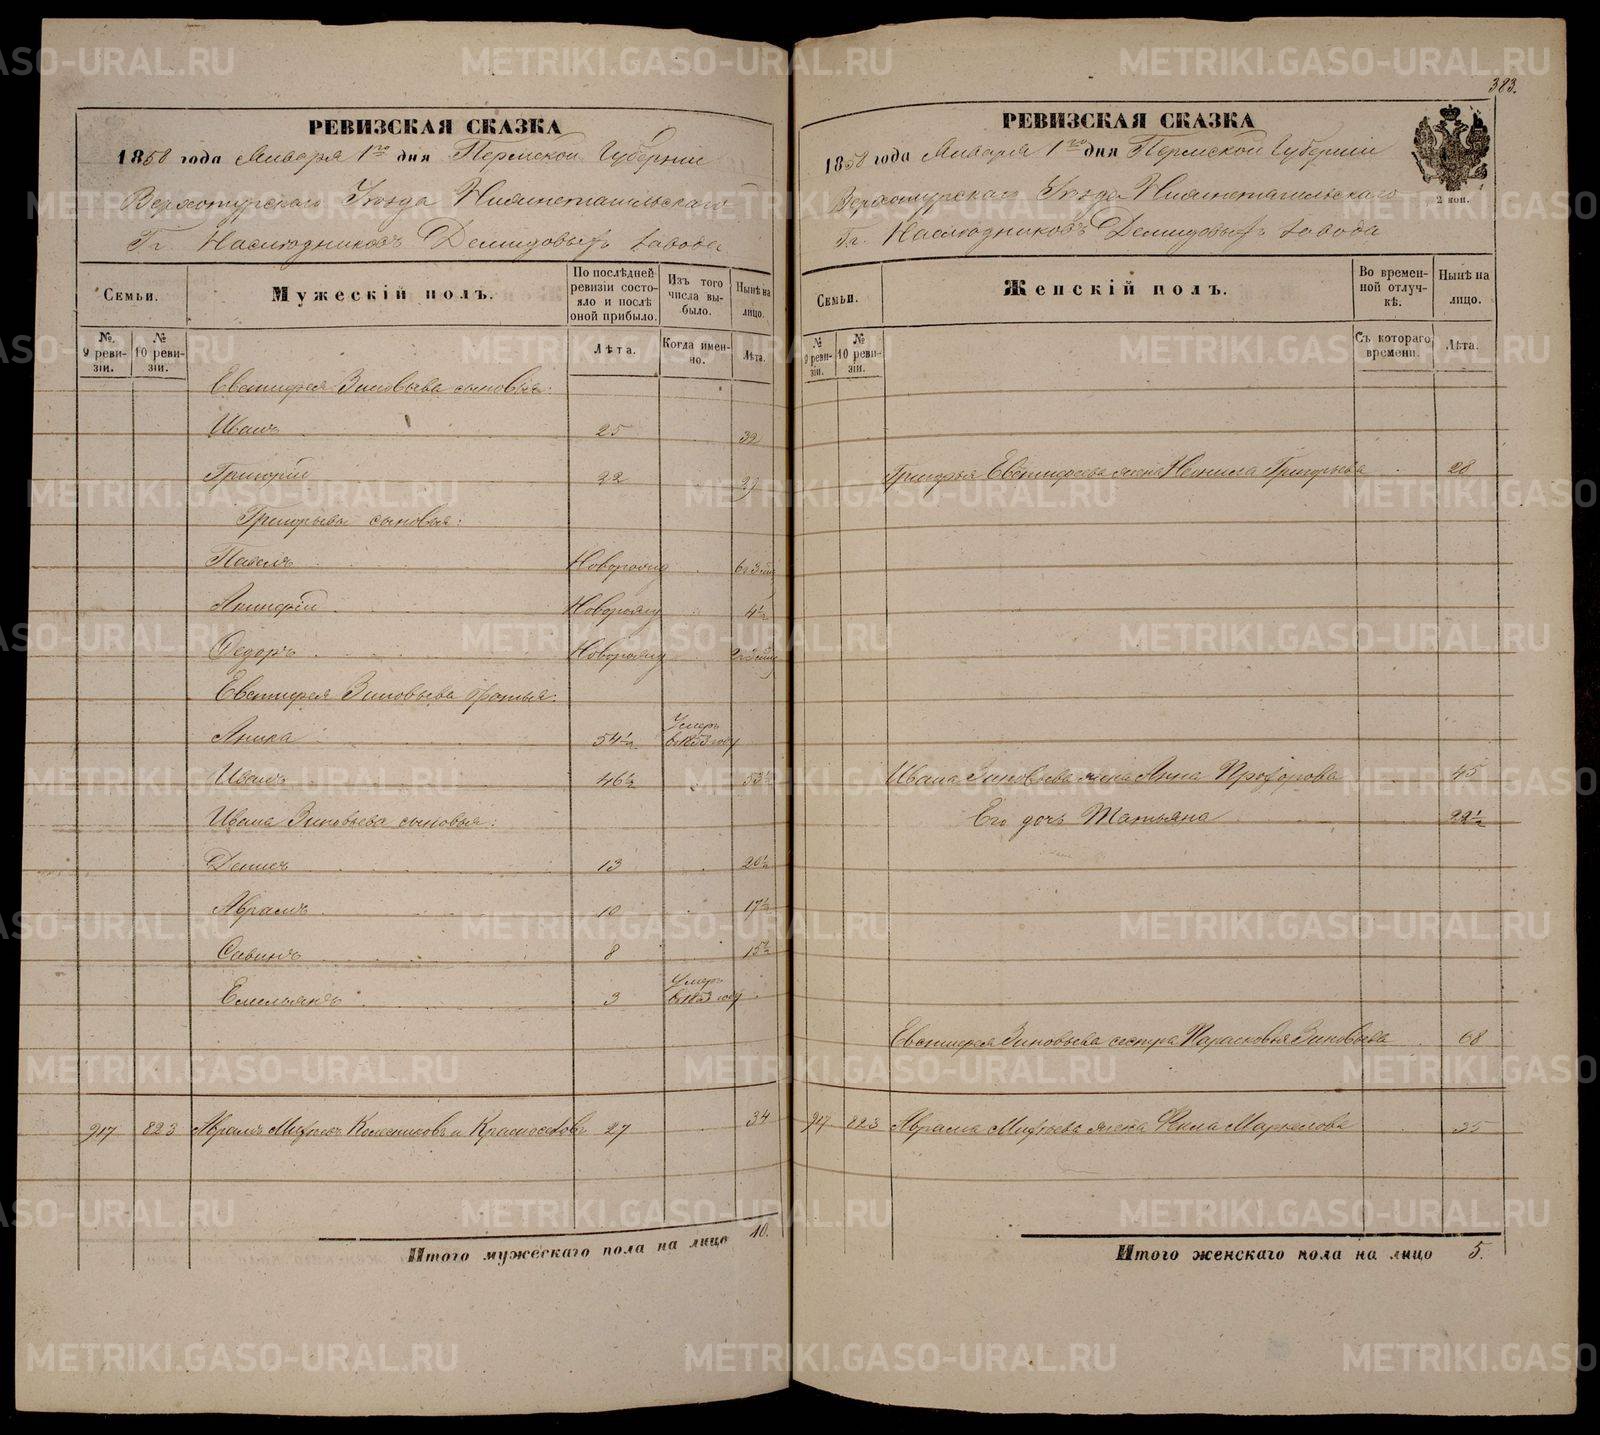 383.
РЕВИЗСКАЯ СКАЗКА
1858 года Января 1го дня Пермской Губернии
Верхотурскаго Уѣзда Нижнетагильскаго
Гг. Наслѣдниковъ Демидовыхъ завода
Семьи.
Мужескій полъ.
По послѣдней ревизіи состояло и послѣ оной прибыло.
Изъ того числа выбыло.
Нынѣ на лицо.
№ 9 ревизіи.
№ 10 ревизіи.
Лѣта.
Когда именно.
Лѣта.
Евстифея Зиновьева сыновья:
Иванъ 25 32
Григорій 22 29
Григорьевы сыновья:
Павелъ Новорожд
Акинфій Новорожд 4½
Ѳедоръ Новорожд
Евстифея Зиновьева братья:
Аника 54½ Умеръ в 1853 году
Иванъ 46½ 53½
Ивана Зиновьева сыновья:
Денисъ 13 20½
Аврамъ 10 17½
Савинъ 8 15½
Емельянъ 3 Умеръ
917 823 Аврамъ Колесниковъ и 27 34
Итого мужескаго пола на лицо 10.
РЕВИЗСКАЯ СКАЗКА
1858 года Января 1го дня Пермской Губерніи
Верхотурскаго Уѣзда Нижнетагильскаго
Гг. Наслѣдниковъ Демидовыхъ завода
2 коп.
Семьи.
Женскій полъ.
Во временной отлучкѣ.
Нынѣ на лицо.
№ 9 ревизіи.
№ 10 ревизіи.
Съ котораго времени.
Лѣта.
Григорья Евстифеева жена Ненила Григорьева 28
Ивана Зиновьева жена Анна Прохорова 45
Его дочь Татьяна 22½
Евстифея Зиновьева сестра Парасковья Зиновьева 68
917 823 Аврама жена Маркелова 35
Итого женскаго пола на лицо 5.
METRIKI.GASO-URAL.RU